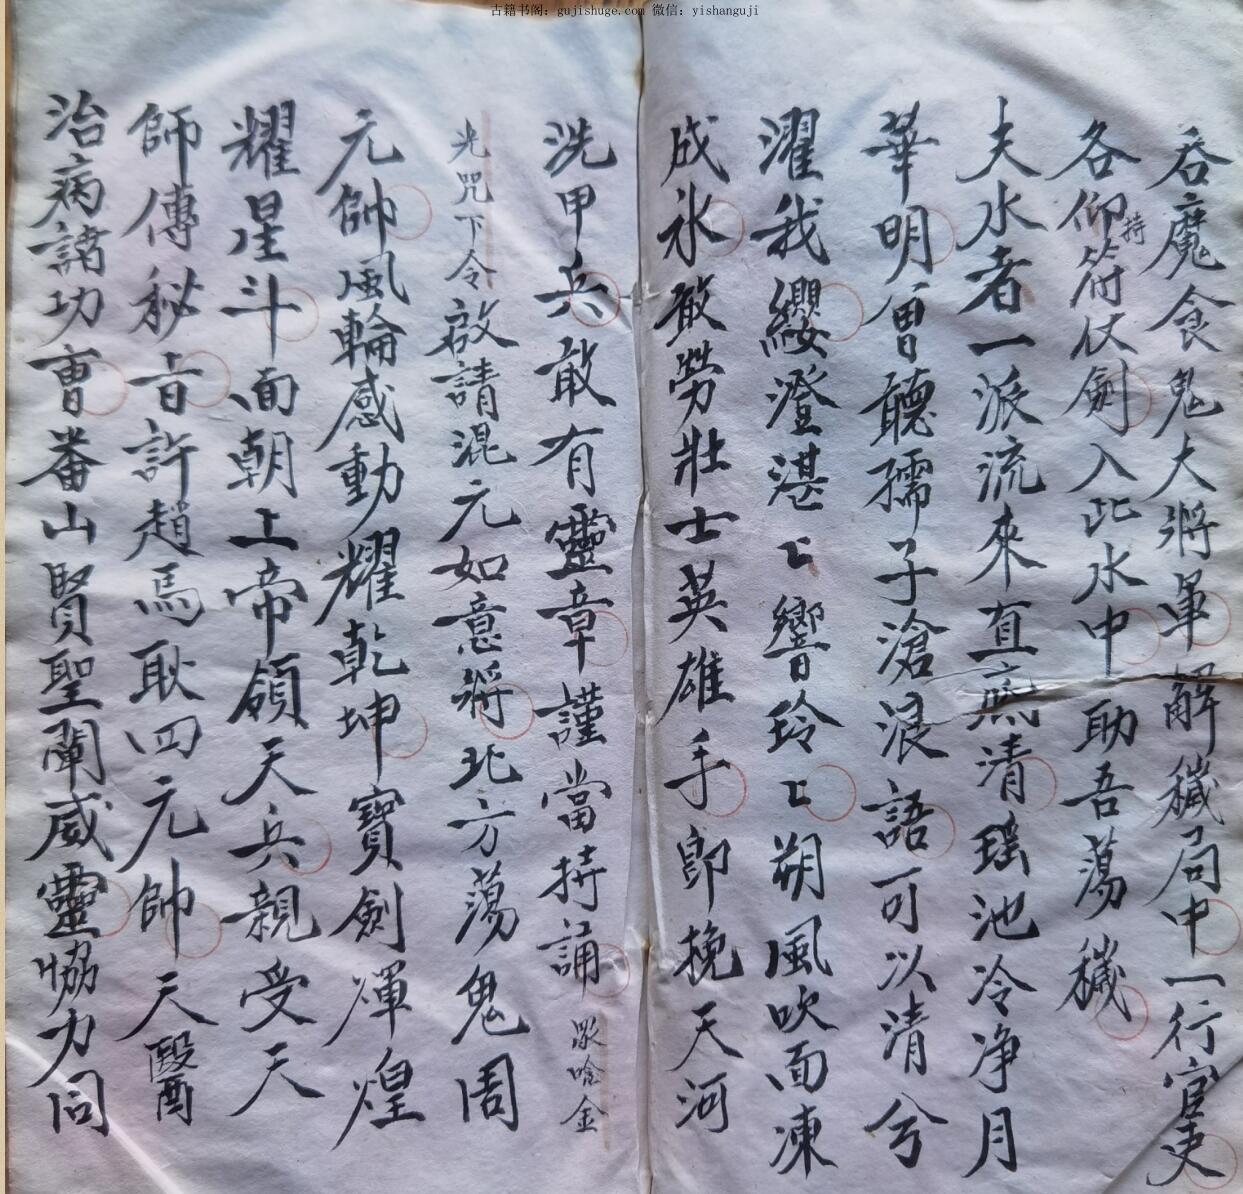 古籍书阁：gujishuge.com 微信：yishanguji
吞魔食鬼大將軍解穢局中一行官吏
各仰持符仗劍入此水中助吾蕩穢
夫水者一派流來直 清瑤池冷净月
華明曾聽孺子滄浪語可以清兮
濯我纓澄湛〻響玲〻朔風吹面凍
成氷敢勞壯士英雄手即挽天河
洗甲兵敢有靈章謹當持誦 眾唫金
光咒下令 啟請混元如意將北方蕩鬼周
元帥風輪感動耀乾坤寶劍渾煌
耀星斗面朝上帝領天兵親受天
師傳秘旨許趙馬耿四元帥天醫
治病諸功曹蓋山賢聖闡威靈協力同